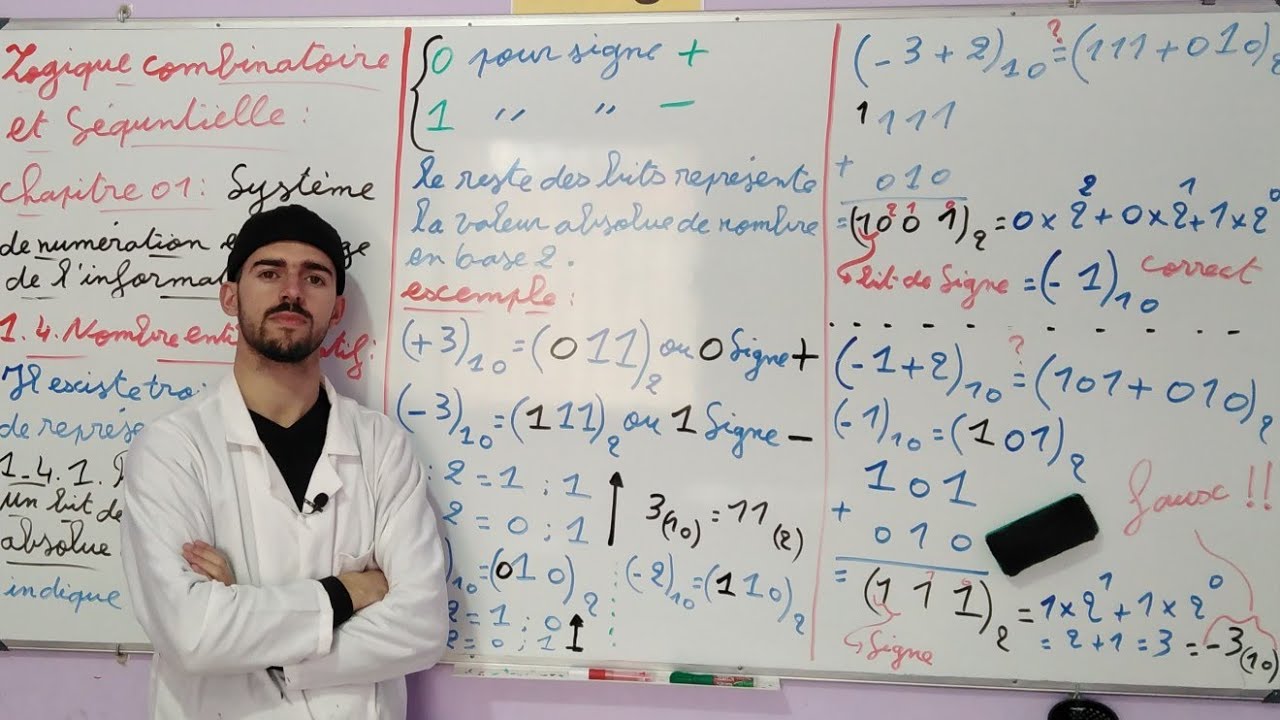 Logique combinatoire
et Séquntielle :
chapitre 01 : Système
de numération
de l'informa
1.4. Nombre enti
Il existe tro
de représe
1.4.1.
un bit de
absolue
indique
0 pour signe +
1 " " —
le reste des bits représente
la valeur absolue de nombre
en base 2.
escemple :
(+3)₁₀ = (011)₂ ou 0 Signe +
(-3)₁₀ = (111)₂ ou 1 Signe -
: 2 = 1 ; 1
2 = 0 ; 1
3(10) = 11(2)
)₁₀ = (010)₂
(-2)₁₀ = (110)₂
2 = 1 ; 0
2 = 0 ; 1
(-3+2)₁₀ ?= (111+010)₂
1111
+
010
= (1001)₂ = 0×2²+0×2¹+1×2⁰
bit de Signe = (-1)₁₀ correct
(-1+2)₁₀ ?= (101+010)₂
(-1)₁₀ = (101)₂
101
+
010
fausc !!
= (111)₂ = 1×2¹+1×2⁰
Signe = 2+1=3 = -3(10)